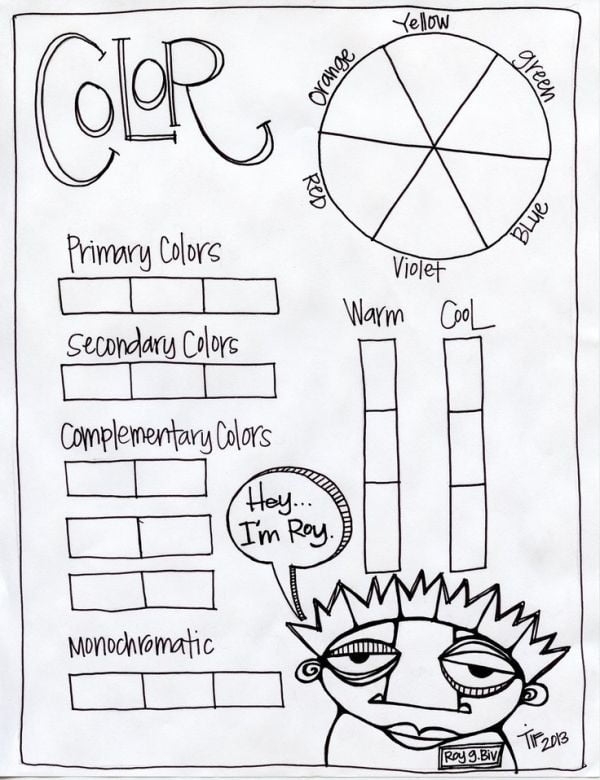 COLOR
Yellow
Orange
green
Red
BLUe
Violet
Primary Colors
Warm
CooL
Secondary Colors
Complementary Colors
Hey...
I'm Roy.
Monochromatic
Roy g. Biv
TIF 2013